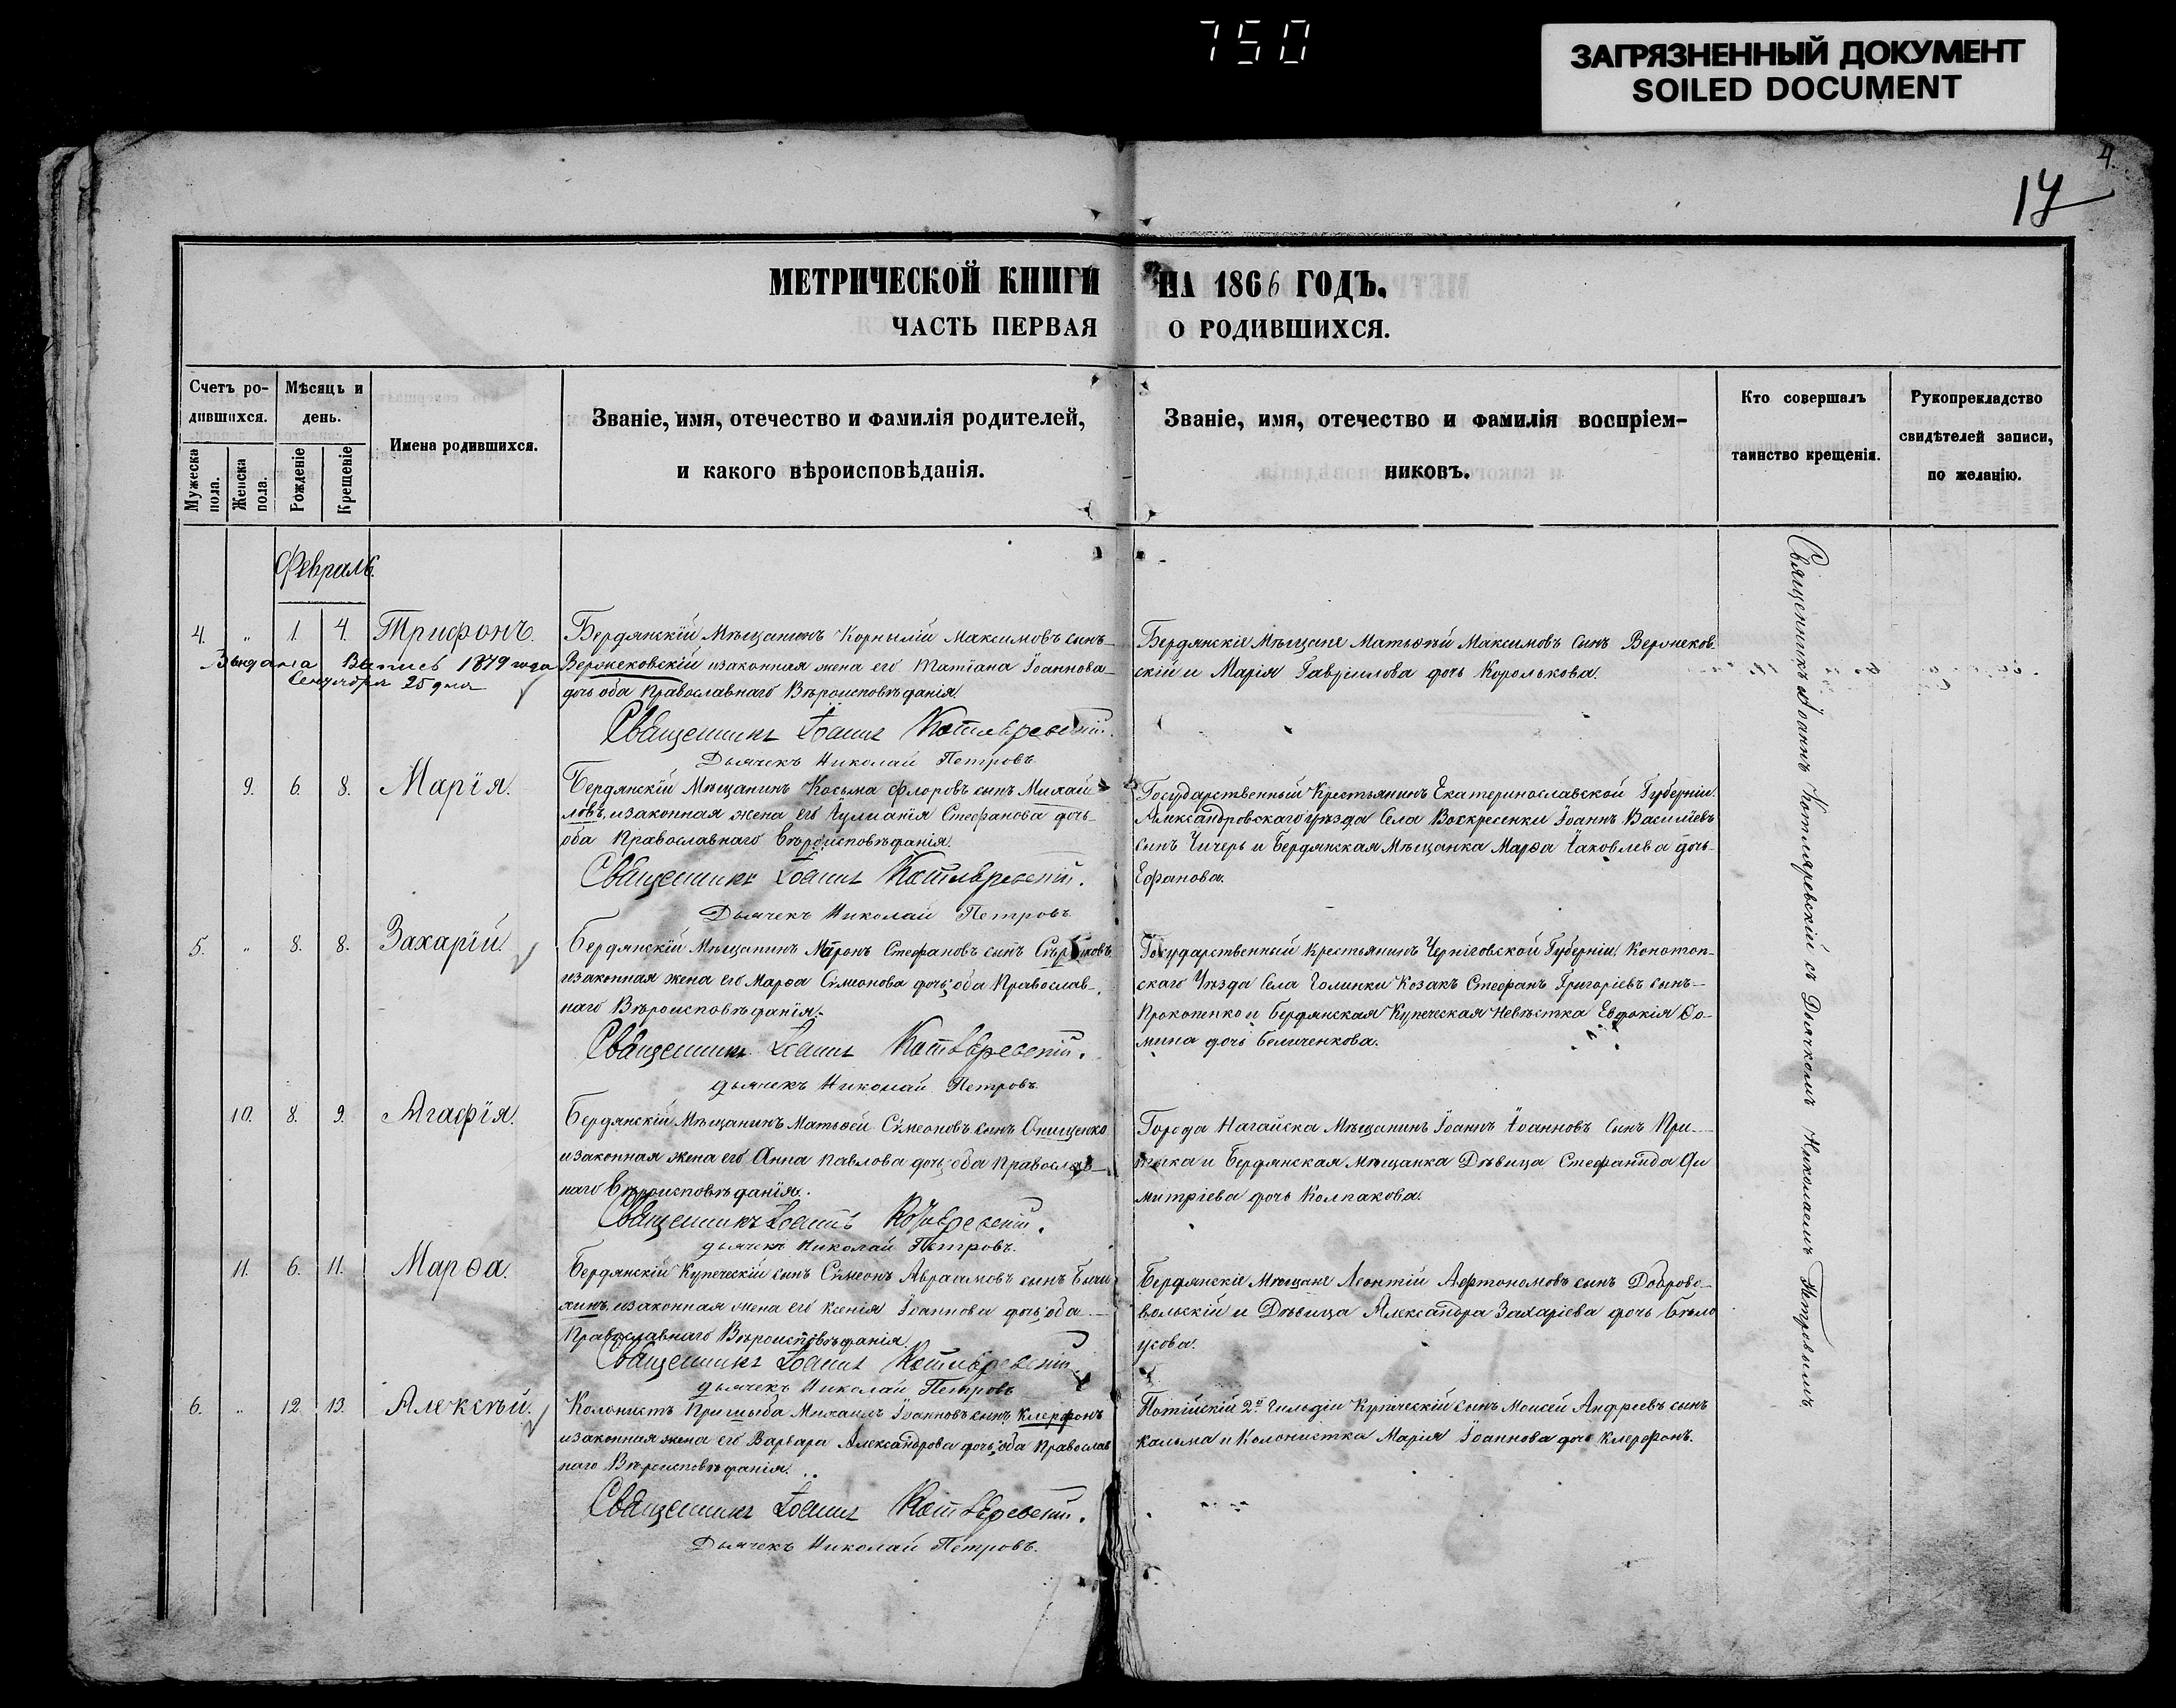 750
ЗАГРЯЗНЕННЫЙ ДОКУМЕНТ
SOILED DOCUMENT
4.
17
МЕТРИЧЕСКОЙ КНИГИ НА 1866 ГОДЪ.
ЧАСТЬ ПЕРВАЯ О РОДИВШИХСЯ.
Счетъ ро-
дившихся.
Мужеска пола.
Женска пола.
Мѣсяцъ и
день.
Рожденіе
Крещеніе
Имена родившихся.
Званіе, имя, отечество и фамилія родителей,
и какого вѣроисповѣданія.
Званіе, имя, отечество и фамилія воспріем-
никовъ.
Кто совершалъ
таинство крещенія.
Рукопрекладство
свидѣтелей записи,
по желанію.
Февраль.
4. " 1. 4. Трифонъ.
Выдана Выпись 1879 года
Сентября 25 дня
Бердянскій Мѣщанинъ Корнилій Максимовъ сынъ
Вережековскій изаконная жена его Татіана Іоаннова
дочь оба Православнаго Вѣроисповѣданія.
Священникъ Іоаннъ Котляревскій.
Дьячекъ Николай Петровъ.
Бердянскіе Мѣщане Матѳѣй Максимовъ сынъ Вережеков
скій и Марія Гавріилова дочь Королькова.
9. 6. 8. Марія.
Бердянскій Мѣщанинъ Косьма Флоровъ сынъ Михай
ловъ, изаконная жена его Іулианія Стефанова дочь
оба Православнаго Вѣроисповѣданія.
Священникъ Іоаннъ Котляревскій.
Дьячекъ Николай Петровъ
Государственный Крестьянинъ Екатеринославской Губерніи
Александровскаго уѣзда Села Воскресенки Іоаннъ Василіевъ
сынъ Чичеръ и Бердянская Мѣщанка Марѳа Іаковлева дочь
Ефанова.
5. " 8. 8. Захарій.
Бердянскій Мѣщанинъ Миронъ Стефановъ сынъ
изаконная жена его Марѳа Сѵмеонова дочь, оба Православ-
наго Вѣроисповѣданія.
Священникъ Іоаннъ Котляревскій.
дьячекъ Николай Петровъ
Государственный Крестьянинъ Черніговской Губерніи, Конотоп-
скаго Уѣзда Села Голинки Козакъ Стефанъ Григоріевъ сынъ
Прокопенко и Бердянская Купеческая Невѣстка Евдокія Ѳо-
мина дочь Беличенкова.
10. 8. 9. Агафія.
Бердянскій Мѣщанинъ Матѳей Сѵмеоновъ сынъ Онищенко
изаконная жена его Анна Павлова дочь, оба Православ-
наго Вѣроисповѣданія.
Священникъ Іоаннъ Котляревскій.
дьячекъ Николай Петровъ.
Города Нагайска Мѣщанинъ Іоаннъ Іоанновъ сынъ При-
тыка и Бердянская Мѣщанка Дѣвица Стефанида Ди
митріева дочь Колпакова.
11. 6. 11. Марѳа.
Бердянскій Купеческій сынъ Сѵмеонъ Авраамовъ сынъ
изаконная жена его Ксенія Іоаннова дочь, оба
Православнаго Вѣроисповѣданія.
Священникъ Іоаннъ Котляревскій
дьячекъ Николай Петровъ
Бердянскіе Мѣщане Леонтій Афтономовъ сынъ Доброво-
вольскій и Дѣвица Александра Захаріева дочь Бѣло
усова.
6. " 12. 13. Алексѣй.
Колонистъ Пришыба Михаилъ Іоанновъ сынъ Клерфонъ
изаконная жена его Варвара Александрова дочь, оба Православ
наго Вѣроисповѣданія.
Священникъ Іоаннъ Котляревскій.
Дьячекъ Николай Петровъ.
Потійскій 2й Гильдіи Купеческій сынъ Моисей Андреевъ сынъ
Кальма и Колонистка Марія Іоаннова дочь Клерфонъ.
Священникъ Іоаннъ Котляревскій съ Дьячкомъ Николаемъ Петровымъ